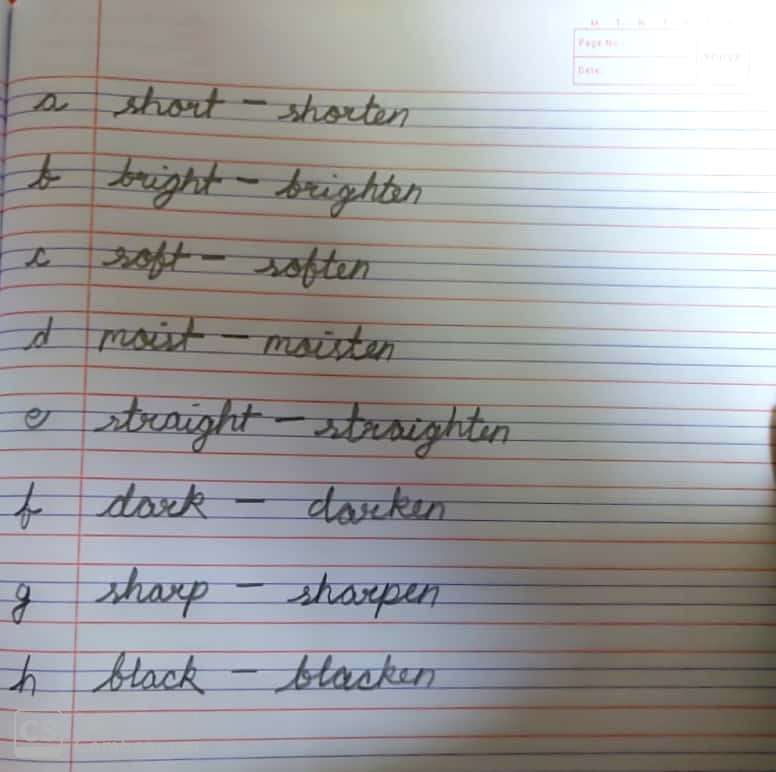 M T W T F S S
Page No.:
Date:
a short - shorten
b bright - brighten
c soft - soften
d moist - moisten
e straight - straighten
f dark - darken
g sharp - sharpen
h black - blacken
CS